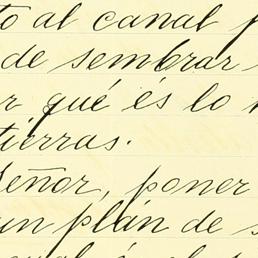 to al canal
de sembrar
qué és lo
tierras.
Señor, poner
un plán de